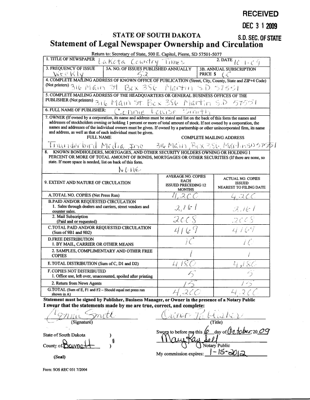 RECEIVED
DEC 3 1 2009
S.D. SEC. OF STATE
STATE OF SOUTH DAKOTA
Statement of Legal Newspaper Ownership and Circulation
Return to: Secretary of State, 500 E. Capitol, Pierre, SD 57501-5077
1. TITLE OF NEWSPAPER Lakota Country Times
2. DATE
3. FREQUENCY OF ISSUE Weekly
3A. NO. OF ISSUES PUBLISHED ANNUALLY 52
3B. ANNUAL SUBSCRIPTION PRICE $
4. COMPLETE MAILING ADDRESS OF KNOWN OFFICE OF PUBLICATION (Street, City, County, State and ZIP+4 Code)
(Not printers) 316 Main St Box 386 Martin SD 57551
5. COMPLETE MAILING ADDRESS OF THE HEADQUARTERS OR GENERAL BUSINESS OFFICES OF THE
PUBLISHER (Not printers) 316 Main St Box 386 Martin SD 57551
6. FULL NAME OF PUBLISHER: Connie Louise Smith
7. OWNER (If owned by a corporation, its name and address must be stated and list on the back of this form the names and
addresses of stockholders owning or holding 1 percent or more of total amount of stock. If not owned by a corporation, the
names and addresses of the individual owners must be given. If owned by a partnership or other unincorporated firm, its name
and address, as well as that of each individual must be given.
FULL NAME COMPLETE MAILING ADDRESS
Thunderbird Media Inc 316 Main Box 386 Martin SD 57551
8. KNOWN BONDHOLDERS, MORTGAGES, AND OTHER SECURITY HOLDERS OWNING OR HOLDING 1
PERCENT OR MORE OF TOTAL AMOUNT OF BONDS, MORTGAGES OR OTHER SECURITIES (If there are none, so
state. If more space is needed, list on back of this form.
NONE
9. EXTENT AND NATURE OF CIRCULATION
AVERAGE NO. COPIES EACH ISSUED PRECEDING 12 MONTHS
ACTUAL NO. COPIES ISSUED NEAREST TO FILING DATE
A. TOTAL NO. COPIES (Net Press Run) 4,200 4,200
B. PAID AND/OR REQUESTED CIRCULATION
1. Sales through dealers and carriers, street vendors and
counter sales. 2,161 2,161
2. Mail Subscription
(Paid and or requested)
C. TOTAL PAID AND/OR REQUESTED CIRCULATION
(Sum of 9B1 and 9B2)
D. FREE DISTRIBUTION
1. BY MAIL, CARRIER OR OTHER MEANS
2. SAMPLES, COMPLIMENTARY AND OTHER FREE
COPIES
E. TOTAL DISTRIBUTION (Sum of C, D1 and D2) 4,180 4,180
F. COPIES NOT DISTRIBUTED
1. Office use, left over, unaccounted, spoiled after printing 5 5
2. Return from News Agents 15 15
G. TOTAL (Sum of E, F1 and F2 - Should equal net press run
shown in A) 4,200 4,200
Statement must be signed by Publisher, Business Manager, or Owner in the presence of a Notary Public
I swear that the statements made by me are true, correct, and complete:
Connie Smith
(Signature) (Title)
State of South Dakota )
County of Bennett )
Sworn to before me this 6 day of October 20 09
Notary Public
(Seal)
My commission expires: 1-15-2012
Form: SOS REC 051 7/2004